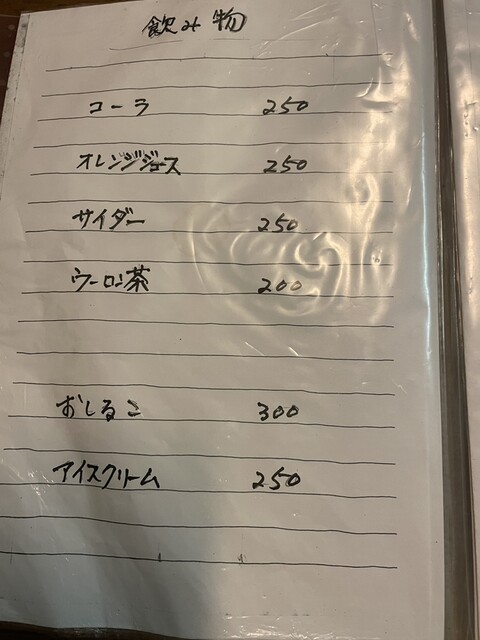 飲み物
コーラ 250
オレンジジュース 250
サイダー 250
ウーロン茶 200
おしるこ 300
アイスクリーム 250